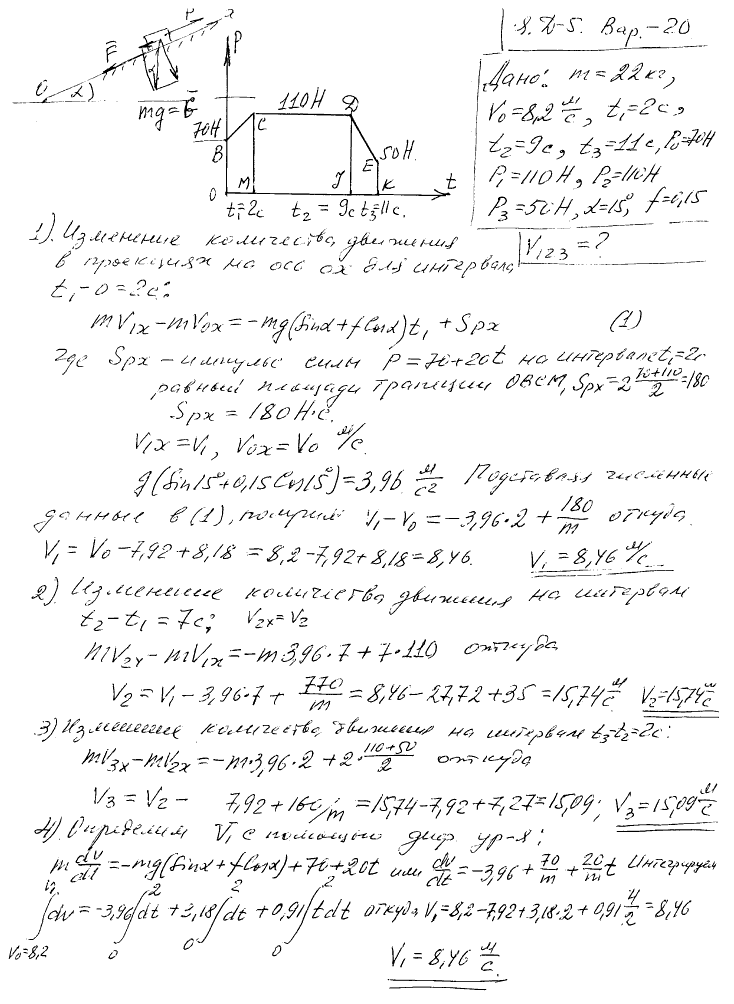 S. Д-5. Вар.-20
Дано: m = 22 кг,
V₀ = 8,2 м/с, t₁ = 2с,
t₂ = 9с, t₃ = 11с, P₀ = 70Н
P₁ = 110Н, P₂ = 110Н
P₃ = 50Н, α = 15°, f = 0,15
V₁₂₃ = ?
O α) F P x
mg = G
P
70Н B C 110Н D
E 50Н
0 M J K t
t₁=2с t₂ = 9с t₃=11с.
1). Изменение количества движения
в проекциях на ось ox для интервала
t₁ - 0 = 2с:
mV₁ₓ - mV₀ₓ = -mg(Sinα + fCosα)t₁ + Spx (1)
где Spx - импульс силы P = 70+20t на интервале t₁=2с
равный площади трапеции OBCM, Spx = 2 (70+110)/2 = 180
Spx = 180 Н·с.
V₁ₓ = V₁, V₀ₓ = V₀ м/с.
g(Sin15° + 0,15 Cos15°) = 3,96 м/с² Подставляя численные
данные в (1), получим V₁ - V₀ = -3,96·2 + 180/m откуда
V₁ = V₀ - 7,92 + 8,18 = 8,2 - 7,92 + 8,18 = 8,46. V₁ = 8,46 м/с
2). Изменение количества движения на интервале
t₂ - t₁ = 7с; V₂ₓ = V₂
mV₂ₓ - mV₁ₓ = -m·3,96·7 + 7·110 откуда
V₂ = V₁ - 3,96·7 + 770/m = 8,46 - 27,72 + 35 = 15,74 м/с V₂ = 15,74 м/с
3) Изменение количества движения на интервале t₃-t₂=2с:
mV₃ₓ - mV₂ₓ = -m·3,96·2 + 2·(110+50)/2 откуда
V₃ = V₂ - 7,92 + 160/m = 15,74 - 7,92 + 7,27 = 15,09; V₃ = 15,09 м/с
4). Определим V₁ с помощью диф. ур-я:
m dv/dt = -mg(Sinα + fCosα) + 70 + 20t или dv/dt = -3,96 + 70/m + 20/m t Интегрируем
∫dv = -3,96∫dt + 3,18∫dt + 0,91∫tdt откуда V₁ = 8,2 - 7,92 + 3,18·2 + 0,91 4/2 = 8,46
V₁ 2 2 2
V₀=8,2 0 0 0
V₁ = 8,46 м/с.